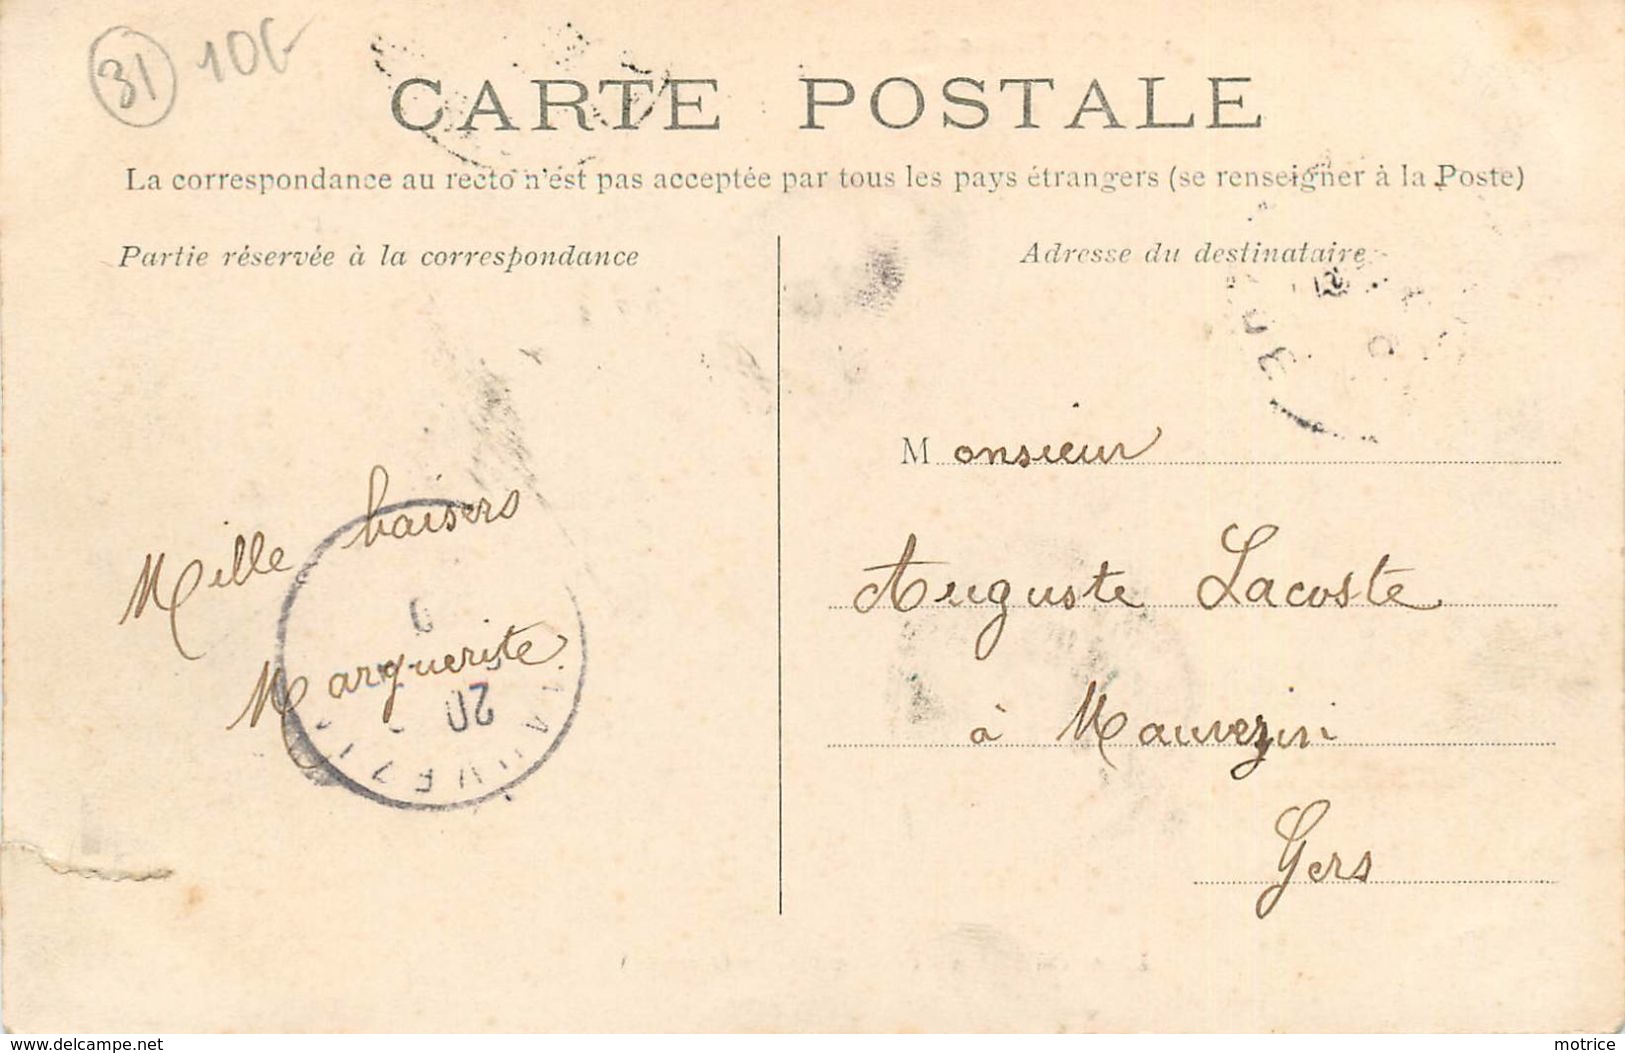 31 10€
CARTE POSTALE
La correspondance au recto n'est pas acceptée par tous les pays étrangers (se renseigner à la Poste)
Partie réservée à la correspondance
Mille baisers
Marguerite
MAUVEZIN
20
Adresse du destinataire
Monsieur
Auguste Lacoste
à Mauvezin
Gers
www.delcampe.net
motrice